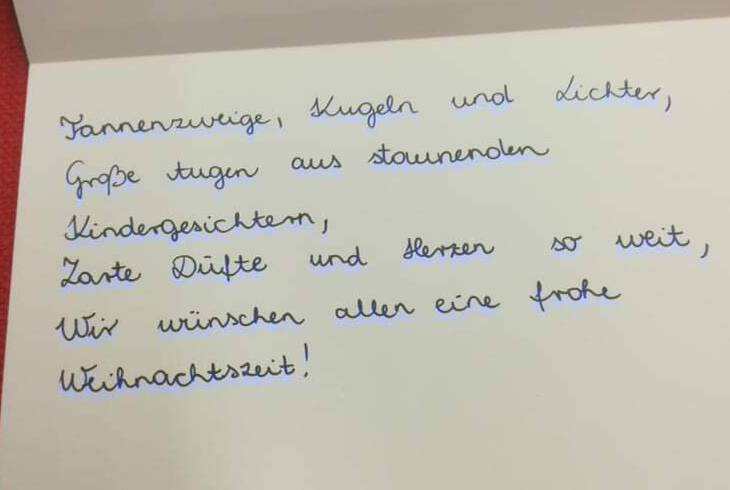 Tannenzweige, Kugeln und Lichter,
Große Augen aus staunenden
Kindergesichtern,
Zarte Düfte und Herzen so weit,
Wir wünschen allen eine frohe
Weihnachtszeit!